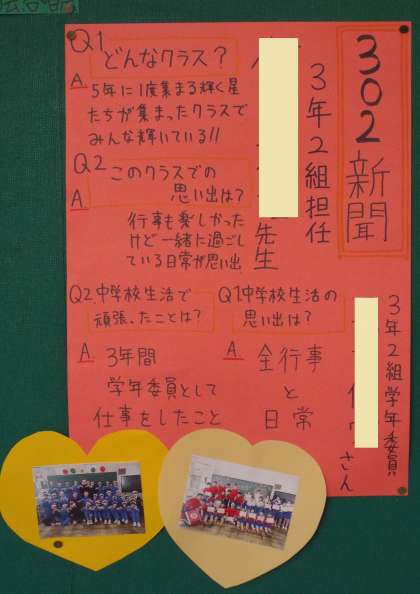 302新聞
3年2組担任
先生
Q1 どんなクラス？
A 5年に1度集まる輝く星
たちが集まったクラスで
みんな輝いている!!
Q2 このクラスでの
思い出は？
A 行事も楽しかった
けど一緒に過ごし
ている日常が思い出
3年2組学年委員
さん
Q1中学校生活の
思い出は？
A 全行事
と
日常
Q2 中学校生活で
頑張、たことは？
A 3年間
学年委員として
仕事をしたこと